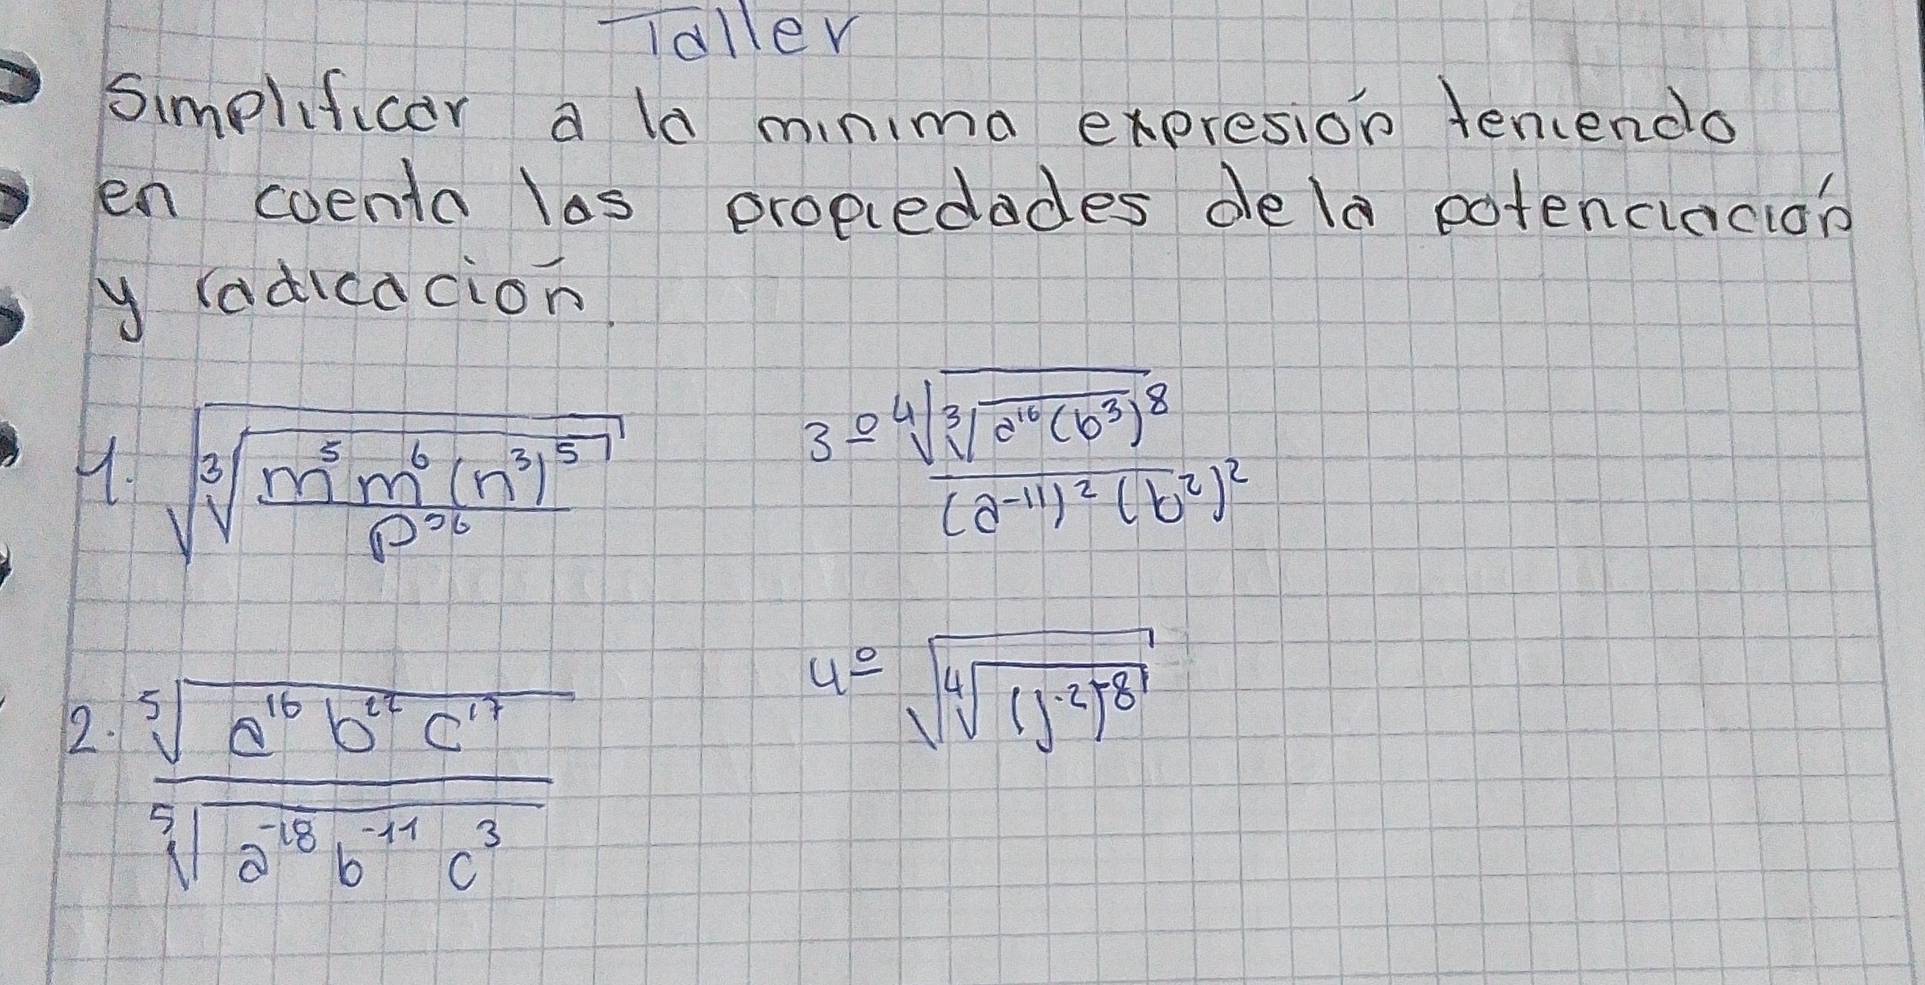 Taller
Simplificar a la minima expresión teniendo
en cuenta las propiedades de la potenciación
y radicación.
1. √∛(m⁵m⁶(n³)⁵ / p³⁶)
3º ⁴√∛(a¹⁶(b³)⁸) / (a⁻¹¹)²(b²)²
2. ⁵√(a¹⁶ b²² c¹⁷) / ⁵√(a⁻¹⁸ b⁻¹¹ c³)
4º √⁴√((j⁻²)⁻⁸)